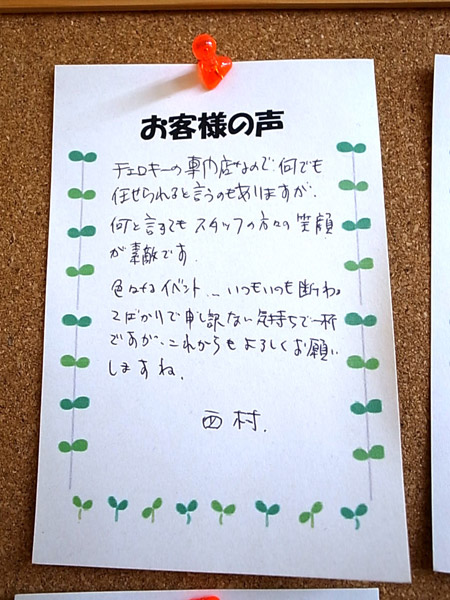 お客様の声
チェロキーの専門店なので、何でも
任せられると言うのもありますが、
何と言ってもスタッフの方々の笑顔
が素敵です。
色々なイベント… いつもいつも断わっ
てばかりで申し訳ない気持ちで一杯
ですが、これからもよろしくお願い
しますね。
西村.